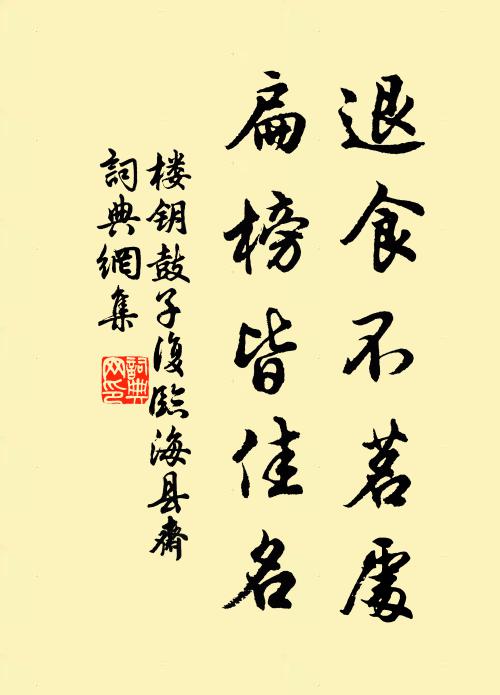 退食不茗處
扁榜皆佳名
楼钥鼓子復臨海县齋
詞典網集
詞典網印